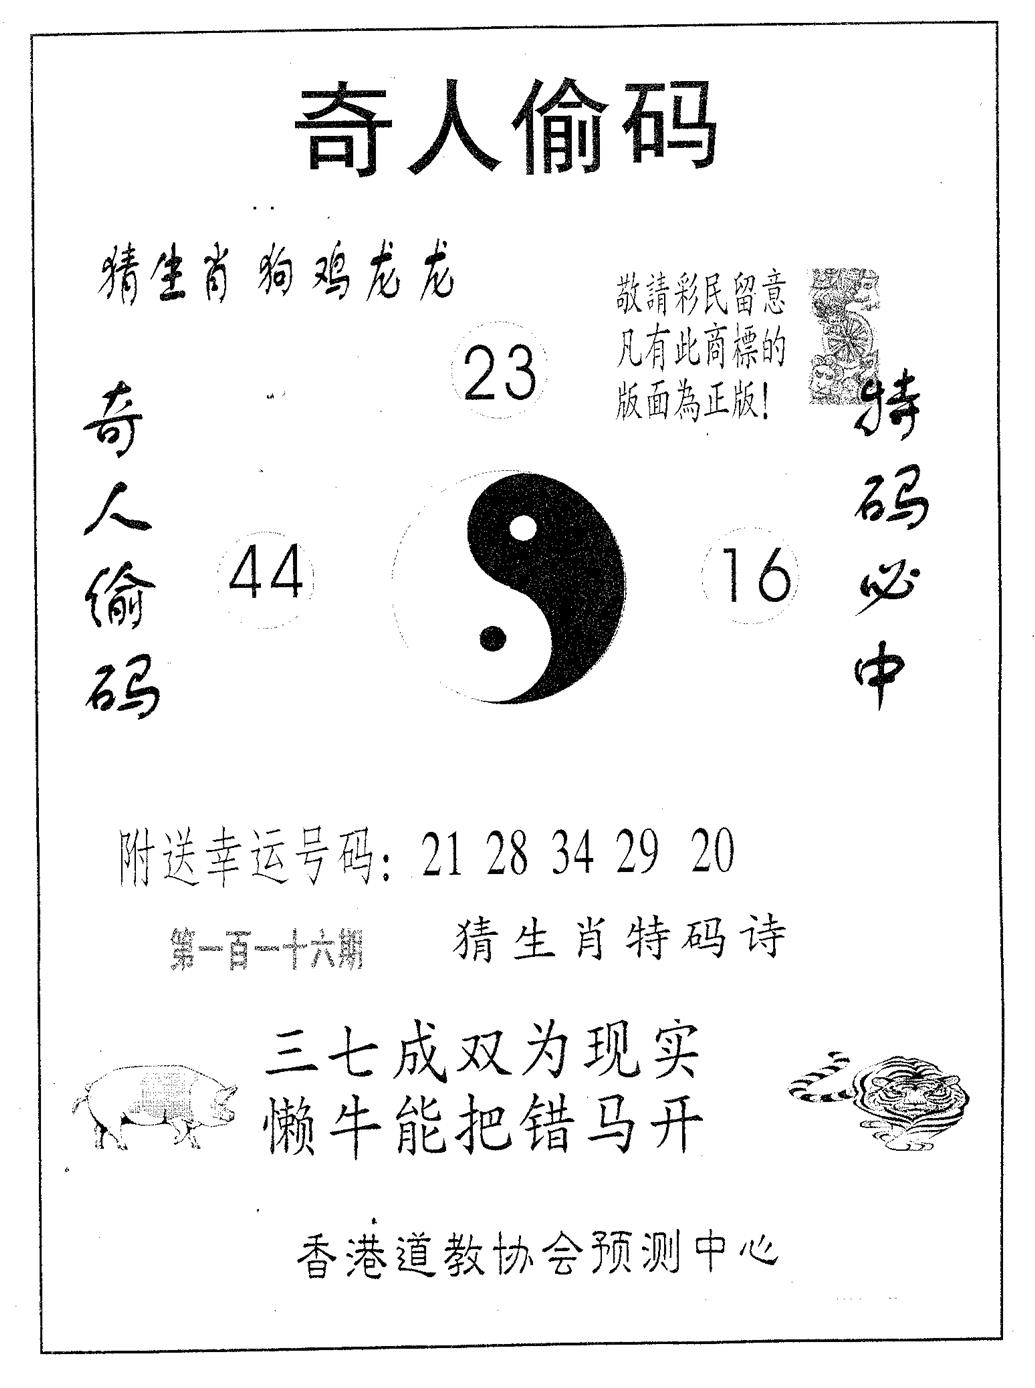 奇人偷码
猜生肖 狗鸡龙龙
敬請彩民留意
凡有此商標的
版面為正版!
23
奇人偷码
特码必中
44
16
附送幸运号码: 21 28 34 29 20
第一百一十六期
猜生肖特码诗
三七成双为现实
懒牛能把错马开
香港道教协会预测中心